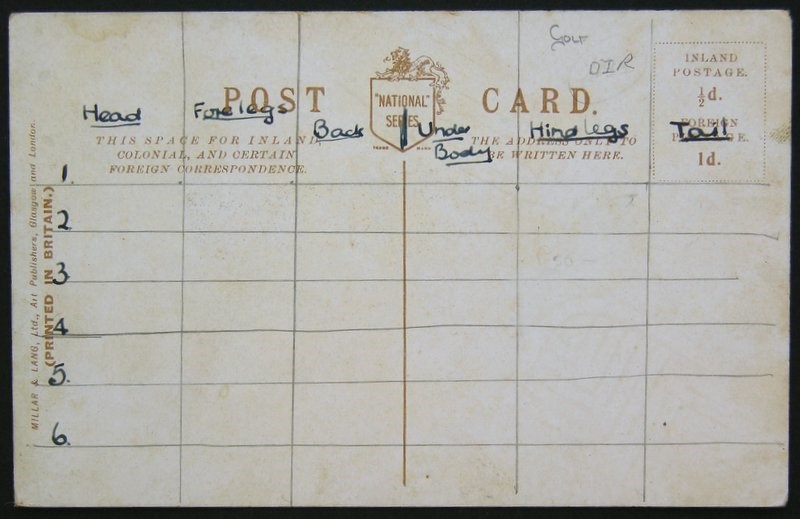 GOLF
OIR
INLAND
POSTAGE.
½d.
FOREIGN
1d.
POST CARD.
"NATIONAL"
SERIES
TRADE MARK
Head Forelegs Back Under Body Hind legs Tail
THIS SPACE FOR INLAND,
COLONIAL, AND CERTAIN
FOREIGN CORRESPONDENCE.
THE ADDRESS ONLY TO
BE WRITTEN HERE.
1.
2
3
4
5.
6.
MILLAR & LANG, Ltd., Art Publishers, Glasgow and London.
(PRINTED IN BRITAIN.)